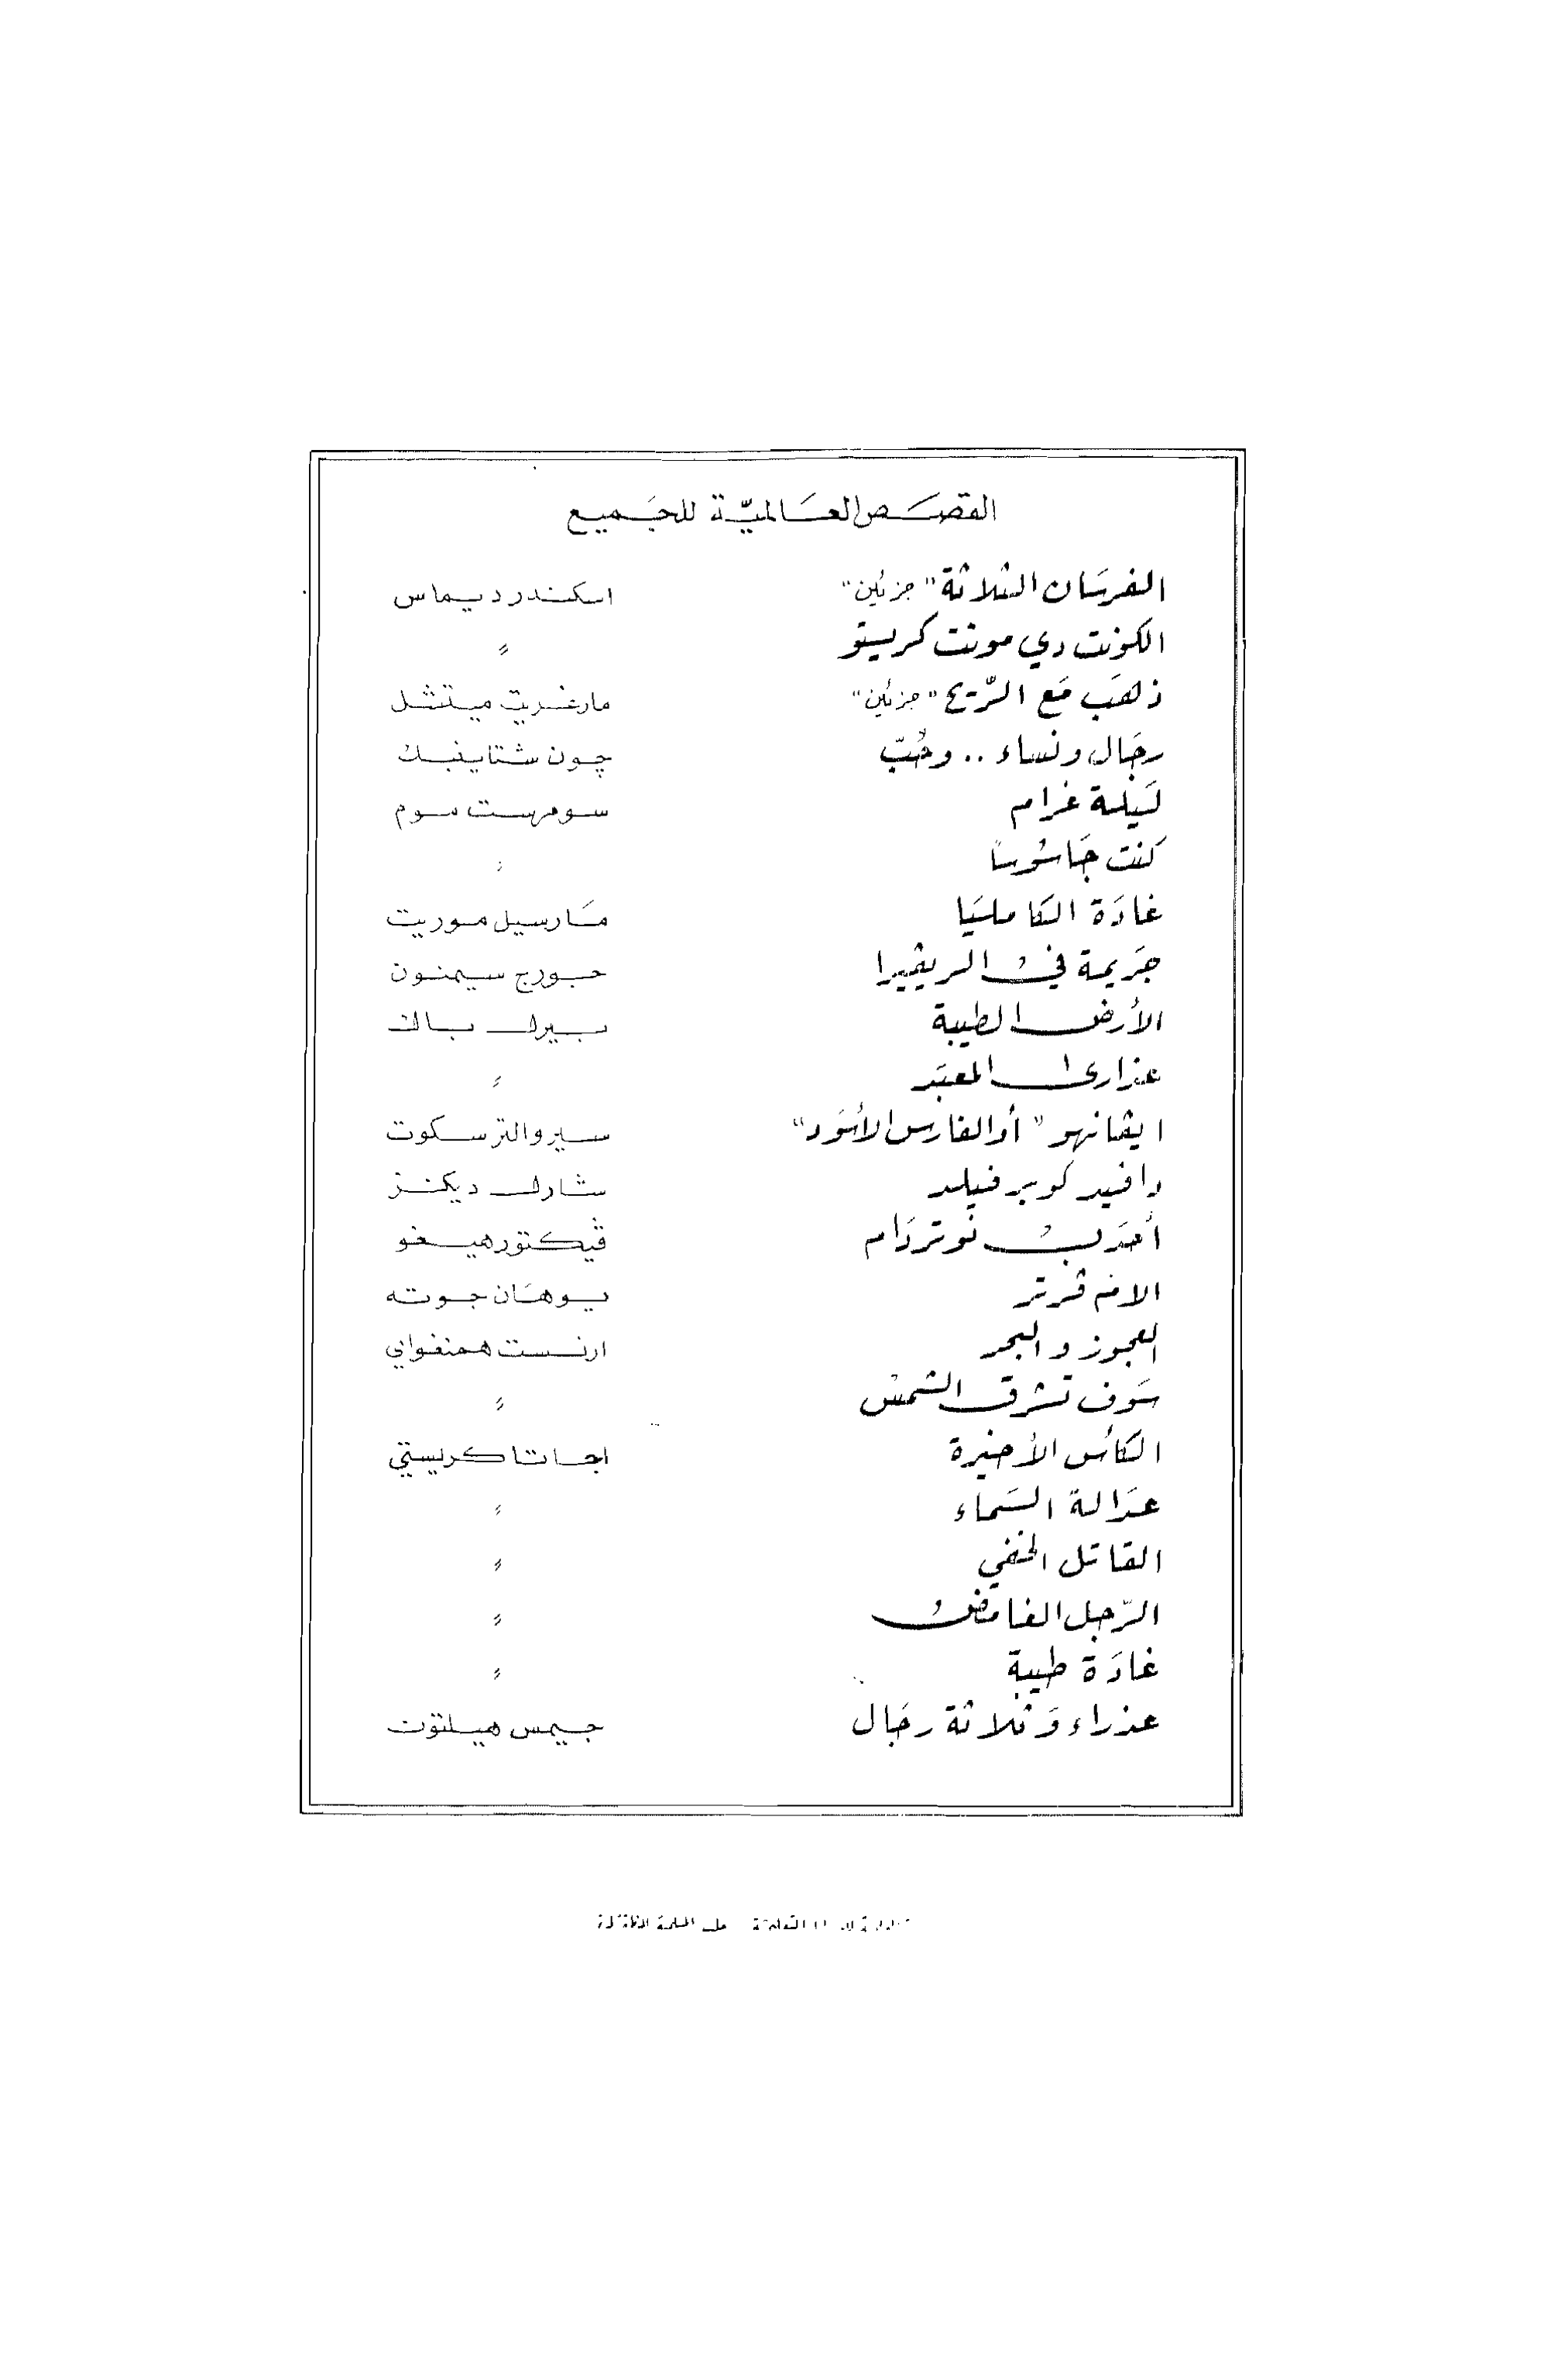 القصَص العَالميّة للجَميع
الفرسَان الثلاثة "جزئين" اسكندر ديماس
الكونت دي مونت كريستو "
ذهَب مَع الرّيح "جزئين" مارغريت ميتشل
رجَال ونساء .. وحُبّ چون شتاينبك
لَيلة غرام سومرست موم
كنت جَاسُوسًا "
غادَة الكامليَا مَارسيل موريت
جَريمة في الريڤييرا جورج سيمنون
الأرض الطيبة بيرل باك
عذارى المعبَد "
ايڤانهو "أو الفارس الأسوَد" سير والتر سكوت
دافيد كوبرفيلد شارل ديكنز
أحدَب نوتردَام ڤيكتور هيغو
الام ڤرتر يوهَان جوته
العجوز والبحر ارنست همنغواي
سَوف تشرق الشمس "
الكأس الأخيرة اجاتا كريستي
عدَالة السَماء "
القاتل الخفي "
الرّجل الغامض "
غادَة طيبة "
عذراء وَثلاثة رجَال جيمس هيلتون